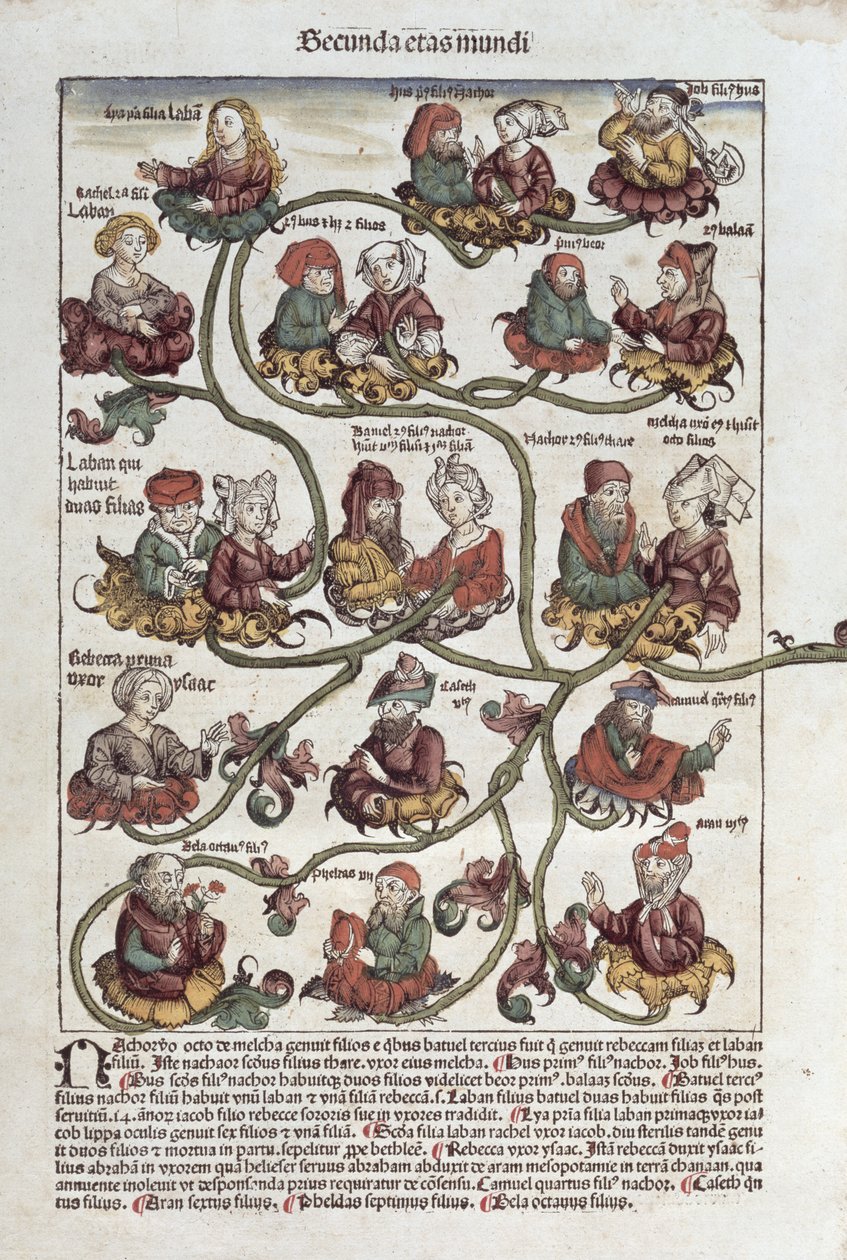 Secunda etas mundi
Lya p̄a filia Labā
Hus p̄ꝰ filiꝰ Nachor
Job filiꝰ hus
Rachel 2a fili
Laban
2ꝰ hus 2 filios
p̄mꝰ beor
2ꝰ balaā
Batuel 2ꝰ filiꝰ nachor
Nachor 2ꝰ filiꝰ thare
melcha vxō eꝰ habuit
octo filios
Laban qui
habuit
duas filias
Rebecca p̄runa
vxor ysaac
Caseth
vtꝰ
camuel qr̄tꝰ filiꝰ
aran vjtꝰ
Bela octauꝰ filiꝰ
pheldas vij
NAchor vo octo de melcha genuit filios e qb̄us batuel tercius fuit q̄ genuit rebeccam filiaʒ et laban
filiū. Iste nachaor scd̄us filius thare. vxor eius melcha. ¶ Hus primꝰ filiꝰ nachor. Job filiꝰ hus.
¶ Hus scd̄s filiꝰ nachor habuitqʒ duos filios videlicet beor primꝰ. balaaʒ scd̄us. ¶ Batuel terciꝰ
filius nachor filiū habuit vnū laban ⁊ vnā filiā rebeccā.s. Laban filius batuel duas habuit filias q̄s post
seruitiū .14. annoꝝ iacob filio rebecce sororis sue in vxores tradidit. ¶ Lya prīa filia laban primaqʒ vxor ia
cob lippa oculis genuit sex filios ⁊ vnā filiā. ¶ Scd̄a filia laban rachel vxor iacob. diu sterilis tandē genu
it duos filios ⁊ mortua in partu. sepelitur ꝓpe bethleē. ¶ Rebecca vxor ysaac. Istā rebeccā duxit ysaac fi
lius abrahā in vxorem quā helieser seruus abraham abduxit de aram mesopotamie in terrā chanaan. qua
annuente inoleuit vt desponsanda prius requiratur de cōsensu. Camuel quartus filiꝰ nachor. ¶ Caseth qn̄
tus filius. ¶ Aran sextus filius. ¶ Pheldas septimus filius. ¶ Bela octauus filius.